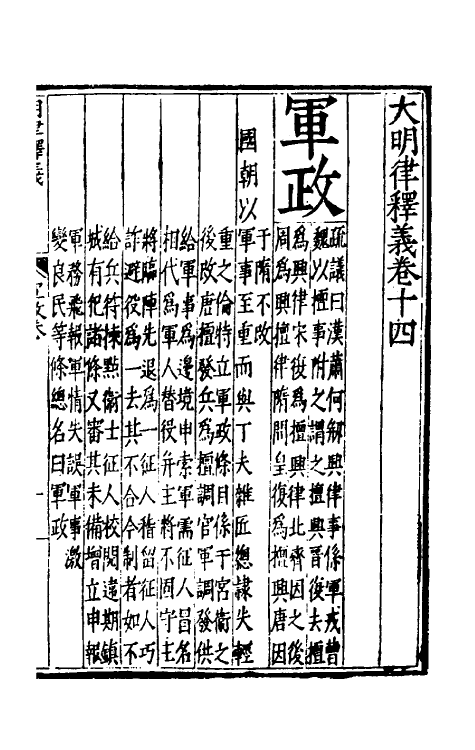 大明律釋義卷十四
軍政
疏議曰漢蕭何刱興律事係軍戎曹
魏以擅事附之謂之擅興晉後去擅
為興律宋後為擅興律北齊因之後
周為興擅律隋開皇復為擅興唐因
于隋不改
國朝以
軍事至重而與丁夫雜匠總隷失輕
重之倫特立軍政條目係于宮衛之
後改唐擅發兵為擅調官軍調發供
給軍事為邊境申索軍需征人冒名
相代為軍人替役并主將不固守主
將臨陣先退為一征人稽留征人巧
詐避役為一去其不合今制者如不
給兵符揀點衛士征人校閱違期鎮
城有犯諸條又審其未備增立申報
軍務飛報軍情失誤軍事激
變良民等條總名曰軍政
明律釋義